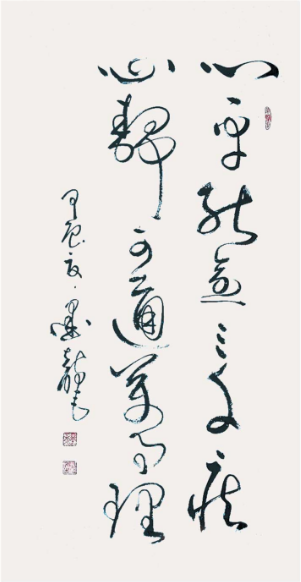 心平能愈三千疾
心静可通萬事理
甲辰夏